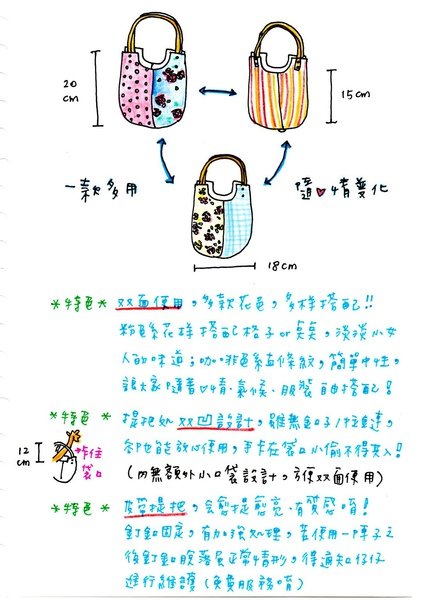 20
cm
15cm
一款多用
隨♥情變化
18cm
*特色* 双面使用，多款花色，多樣搭配!!
粉色系花樣搭配格子or點點，淡淡小女
人的味道；咖啡色系直條紋，簡單中性，
讓大家隨著♡情、氣候、服裝自由搭配！
*特色* 提把處双凹設計，雖無釦子/拉鍊，
卻也能放心使用，手卡在袋口小偷不得其入！
12
cm
卡住
袋口
(內無額外小口袋設計，方便双面使用)
*特色* 皮革提把，會愈提愈亮、有質感唷！
釘釦固定，有加強處理，若使用一陣子之
後釘釦脫落屬正常情形，得通知仔仔
進行維護(免費服務唷)